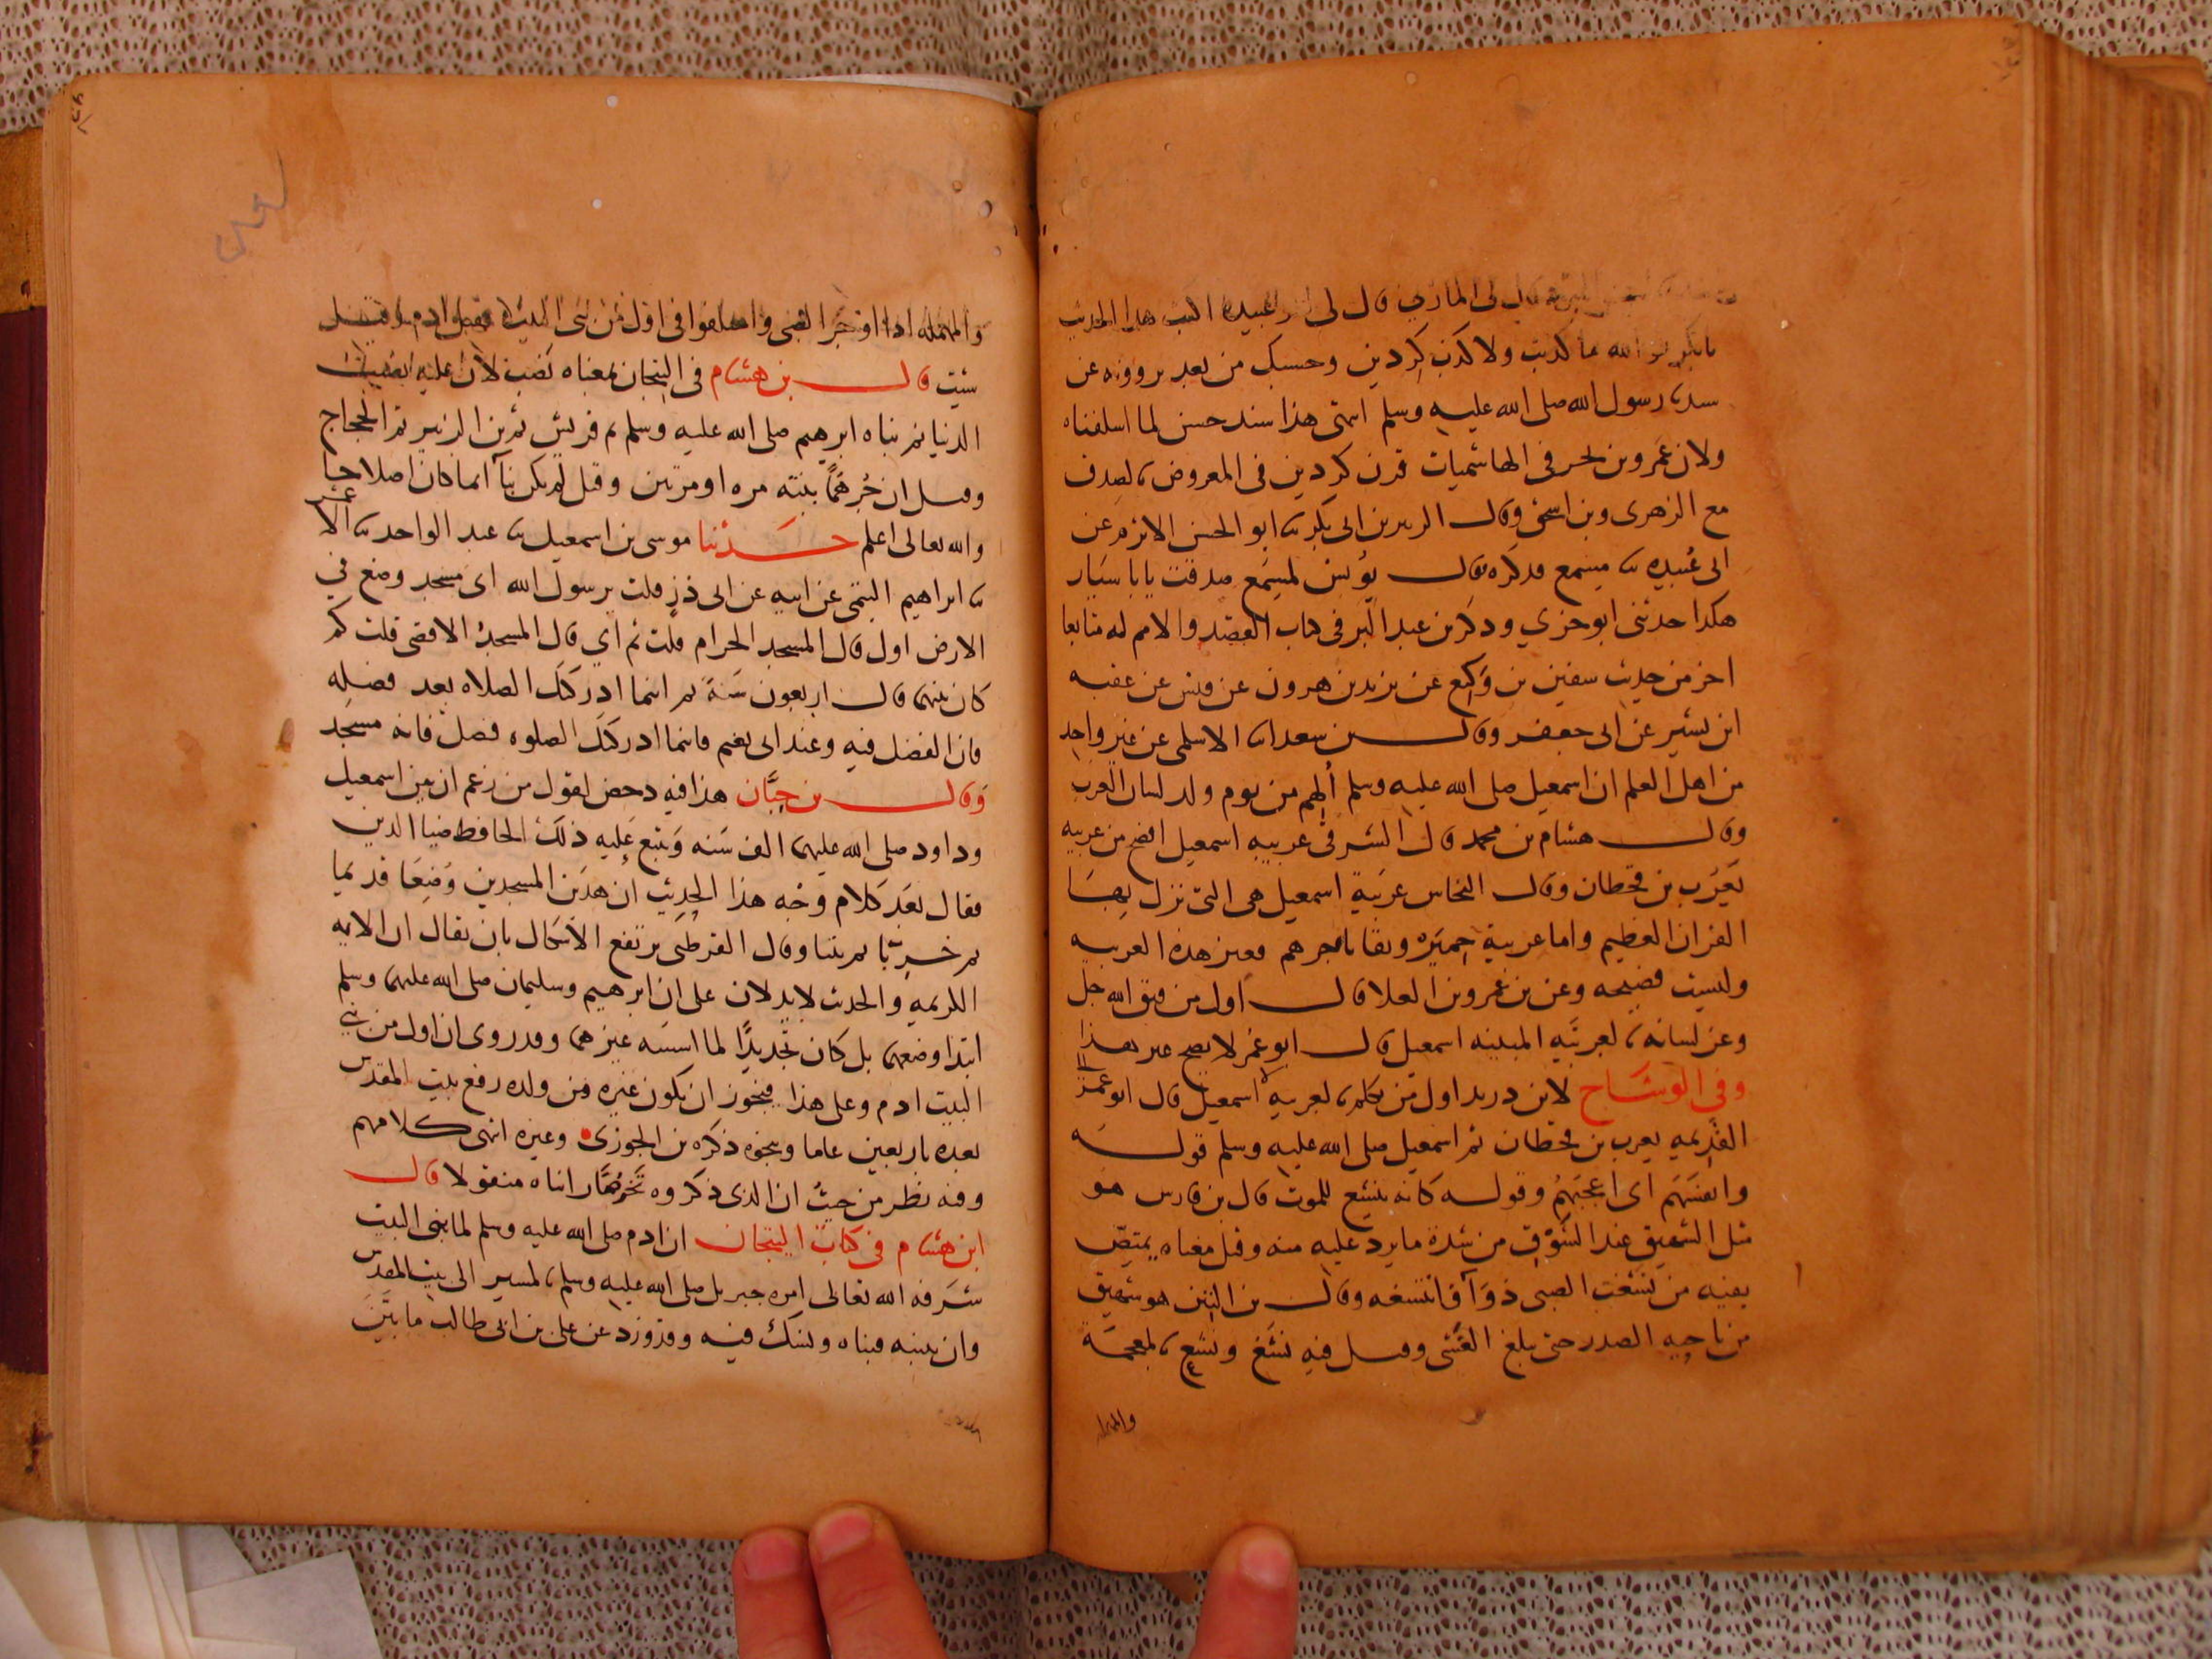 لى المازني قال لى ابو عبيده اكتب هذا الحديث
ما كذبت ولا كذب كردين وحسبك من بعد برووه عن
رسول الله صلى الله عليه وسلم انتهى هذا سند حسن لما اسلفناه
ولان عمرو بن بحر فى الهاشميات قرن كردين فى المعروض بالصدق
مع الزهرى وبن اسحق وقال الزبير بن ابى بكر ثنا ابو الحسن الاثرم عن
ابى عبيده ثنا مسمع فذكره فقال يونس لمسمع صدقت يابا سيار
هكدا حدثنى ابو جزي وذكر بن عبد البر فى كتاب القصد والامم له متابعا
اخر من حديث سفين بن وكيع عن يزيد بن هرون عن قيس عن عقبه
ابن بشير عن ابى جعفر وقال بن سعد انا الاسلمى عن غير واحد
من اهل العلم ان اسمعيل صلى الله عليه وسلم ألهم من يوم ولد لسان العرب
وقال هشام بن محمد قال الشرقى عربيه اسمعيل افصح من عربيه
يعرب بن قحطان وقال النحاس عربية اسمعيل هى التى نزل بها
القران العظيم واما عربية حمير وبقايا جرهم فغير هذه العربيه
وليست فصيحه وعن بن عمرو بن العلا قال اول من فتق الله جل
وعز لسانه بالعربيه المبينه اسمعيل قال ابو عمر لا يصح غير هذا
وفي الوشاح لابن دريد اول من تكلم بالعربيه اسمعيل قال ابو عمر
القديمه يعرب بن قحطان ثم اسمعيل صلى الله عليه وسلم قوله
وانفسهم اى اعجبهم وقوله كانه ينشغ للموت قال بن فارس هو
مثل الشهيق عند الشوق من شدة ما يرد عليه منه وقيل معناه يمتص
بفيه من نشغت الصبى دوآ فانتشغه وقال بن التين هو شهيق
من ناحيه الصدر حتى يبلغ الغشى وقيل فيه نشغ ونشع بالمعجمة
والمهمله
والمهمله اذا اوجر الصبى واختلفوا فى اول من بنى البيت فقيل ادم وقيل
شيث قال بن هشام فى التيجان
الدنيا ثم بناه ابرهيم صلى الله عليه وسلم ثم قريش ثم بن الزبير ثم الحجاج
وقيل ان جرهما بنته مره او مرتين وقيل لم يكن بنآ انما كان اصلاحا
والله تعالى اعلم حدثنا موسى بن اسمعيل ثنا عبد الواحد ثنا الاعمش
ثنا ابراهيم التيمى عن ابيه عن ابى ذر قلت يرسول الله اى مسجد وضع في
الارض اول قال المسجد الحرام قلت ثم اي قال المسجد الاقصى قلت كم
كان بينهما قال اربعون سنة ثم اينما ادركتك الصلاه بعد فصله
فان الفضل فيه وعند ابى نعيم فاينما ادركتك الصلوه فصل فانه مسجد
وقال بن حبان هذا فيه دحض لقول من زعم ان بين اسمعيل
وداود صلى الله عليهما الف سنه وتبع عليه ذلك الحافظ ضيا الدين
فقال بعد كلام وجه هذا الحديث ان هذين المسجدين وضعا قديما
ثم خربا ثم بنيا وقال القرطبى يرتفع الاشكال بان يقال ان الايه
الكريمه والحديث لا يدلان على ان ابرهيم وسليمان صلى الله عليهما وسلم
ابتدا وضعهما بل كان تجديدا لما اسسه غيرهما وقد روى ان اول من بنى
البيت ادم وعلى هذا فيجوز ان يكون غيره من ولده رفع بيت المقدس
بعده باربعين عاما وبنحوه ذكره بن الجوزى وغيره انتهى كلامهم
وفيه نظر من حيث ان الذى ذكروه تخرصا راياه منقولا قال
ابن هشام في كتاب التيجان ان ادم صلى الله عليه وسلم لما بنى البيت
شرفه الله تعالى امره جبريل صلى الله عليه وسلم بالمسير الى بيت المقدس
وان يبنيه فبناه ونسك فيه وقد ورد عن على بن ابى طالب ما يبين